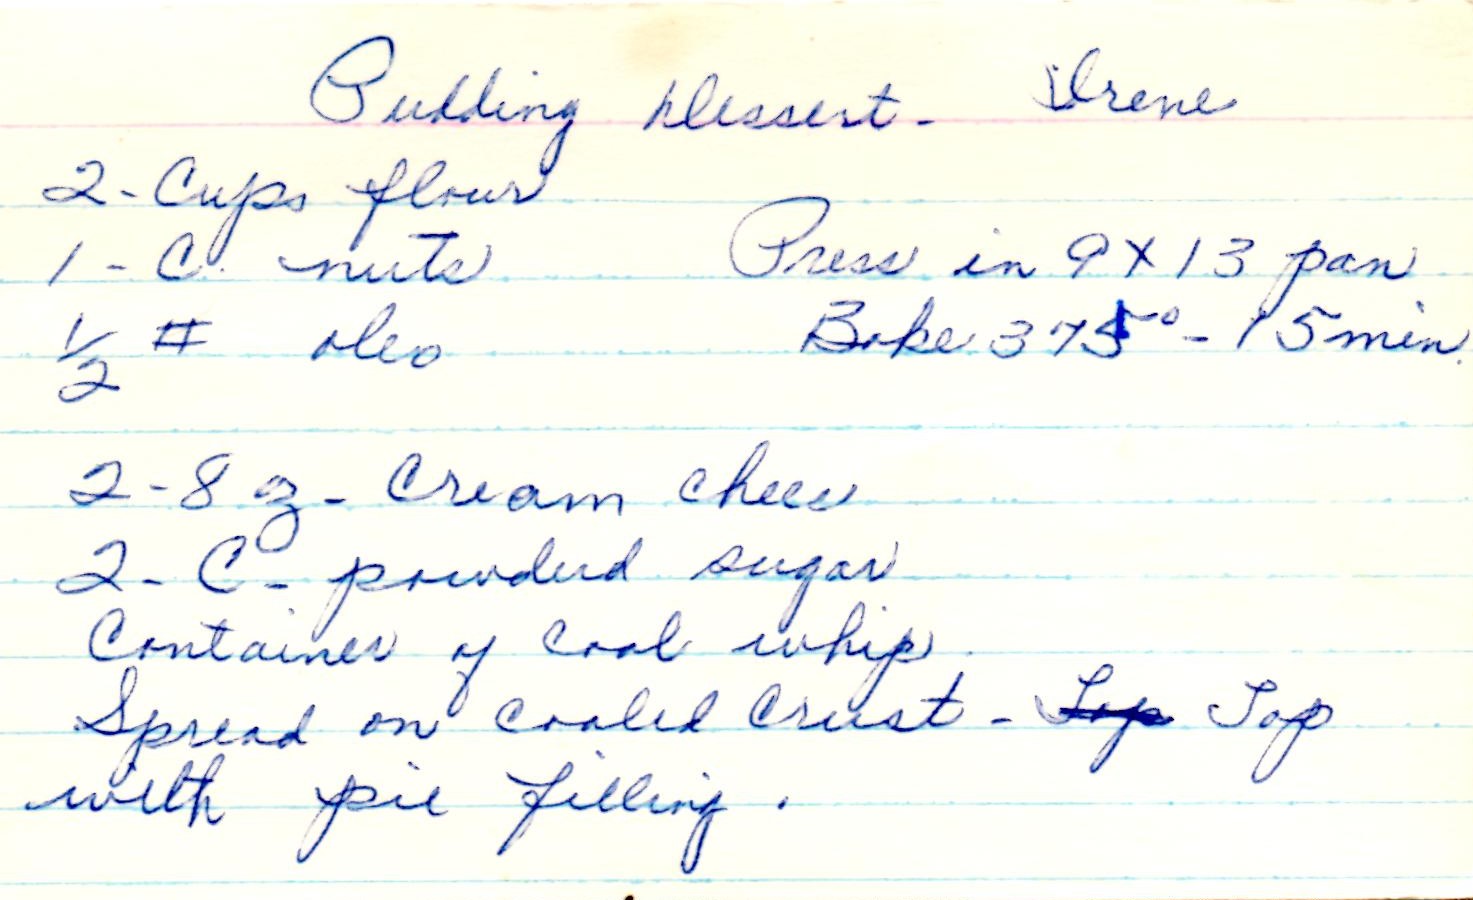 Pudding Dessert - Irene
2 - Cups flour
1 - C. nuts
Press in 9 X 13 pan
1/2 # oleo
Bake 375° - 15 min.
2 - 8 oz - Cream chees
2 - C - powderd sugar
Container of cool whip
Spread on cooled Crust - ~~Top~~ Top
with pie filling.